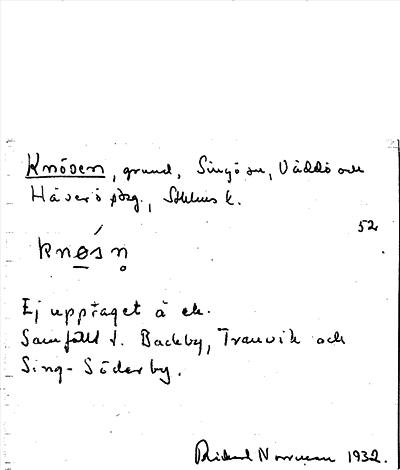 Knösen, grund, Singö sn, Väddö och
Häverö skg., Sthlms l.
52
knøs n̥
Ej upptaget å ek.
Samfällt f. Backby, Tranvik och
Sing-Söderby.
Rikard Norrman 1932.